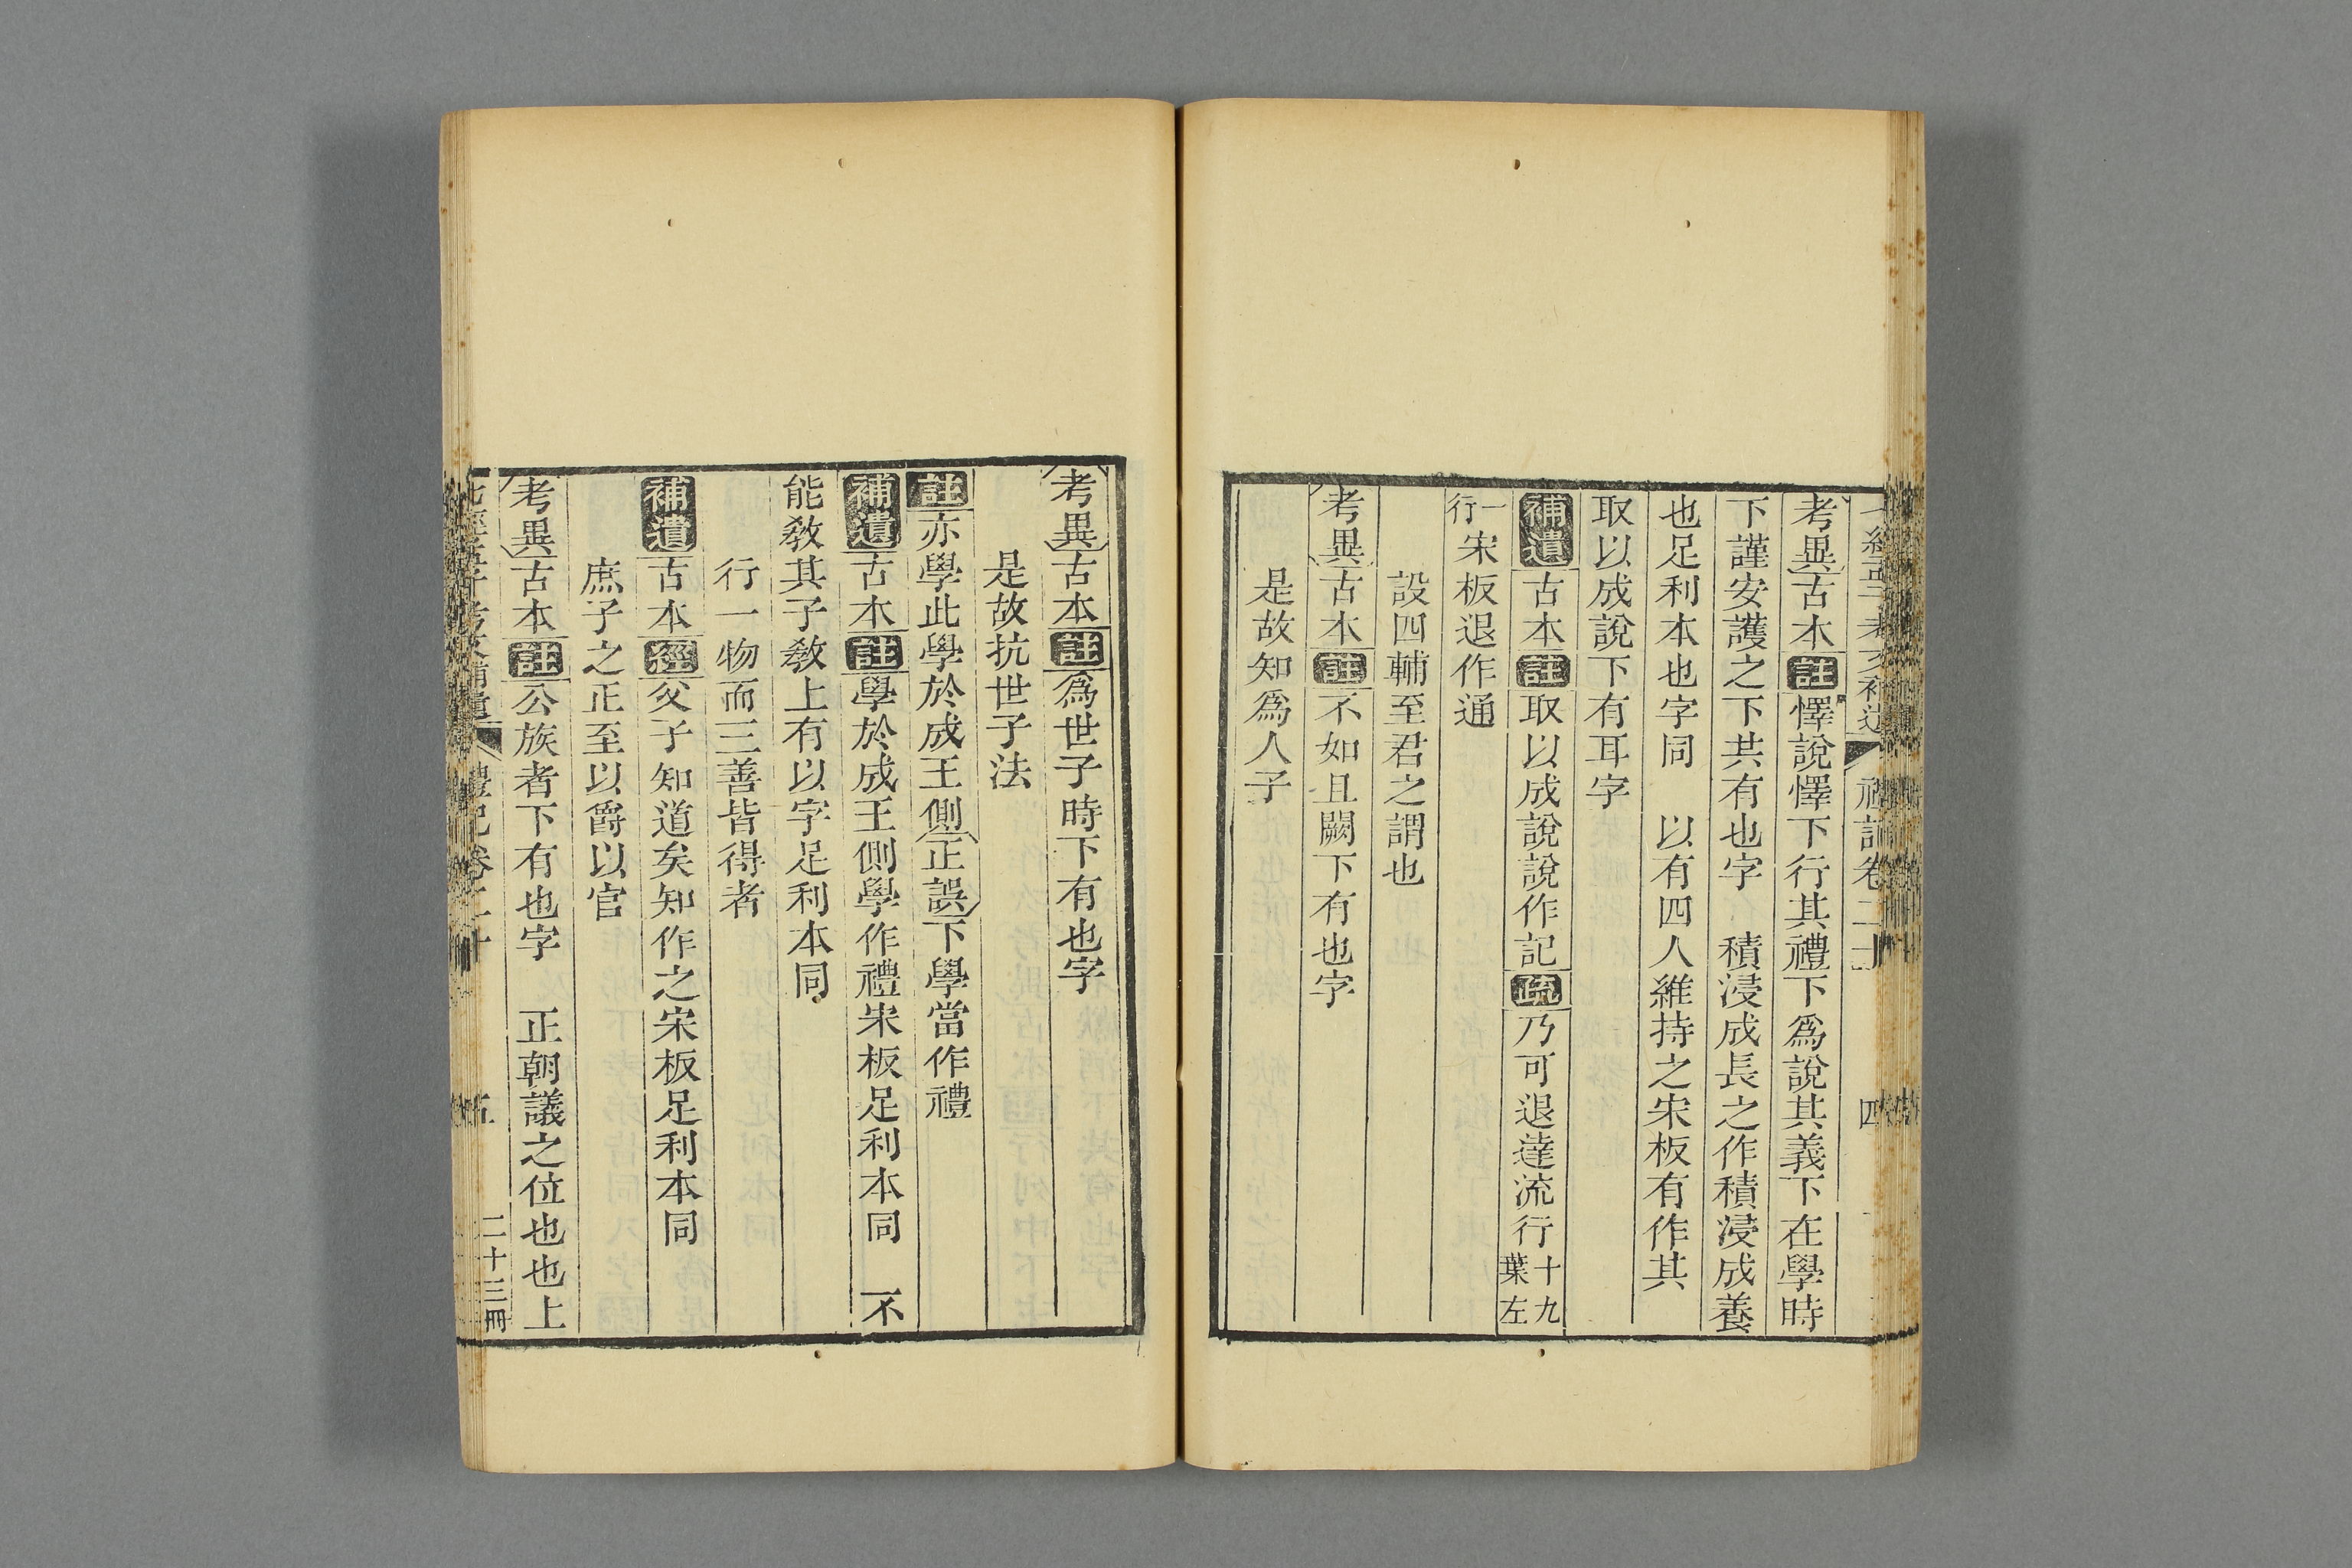 考異古本註懌說懌下行其禮下爲說其義下在學時
下謹安護之下共有也字　積浸成長之作積浸成養
也足利本也字同　以有四人維持之宋板有作其
取以成說下有耳字
補遺古本註取以成說說作記疏乃可退達流行十九葉左
一行宋板退作通
設四輔至君之謂也
考異古本註不如且闕下有也字
是故知爲人子
考異古本註爲世子時下有也字
是故抗世子法
註亦學此學於成王側正誤下學當作禮
補遺古本註學於成王側學作禮宋板足利本同　不
能教其子敎上有以字足利本同
行一物而三善皆得者
補遺古本經父子知道矣知作之宋板足利本同
庶子之正至以爵以官
考異古本註公族者下有也字　正朝議之位也也上
禮記卷二十
五
二十三冊